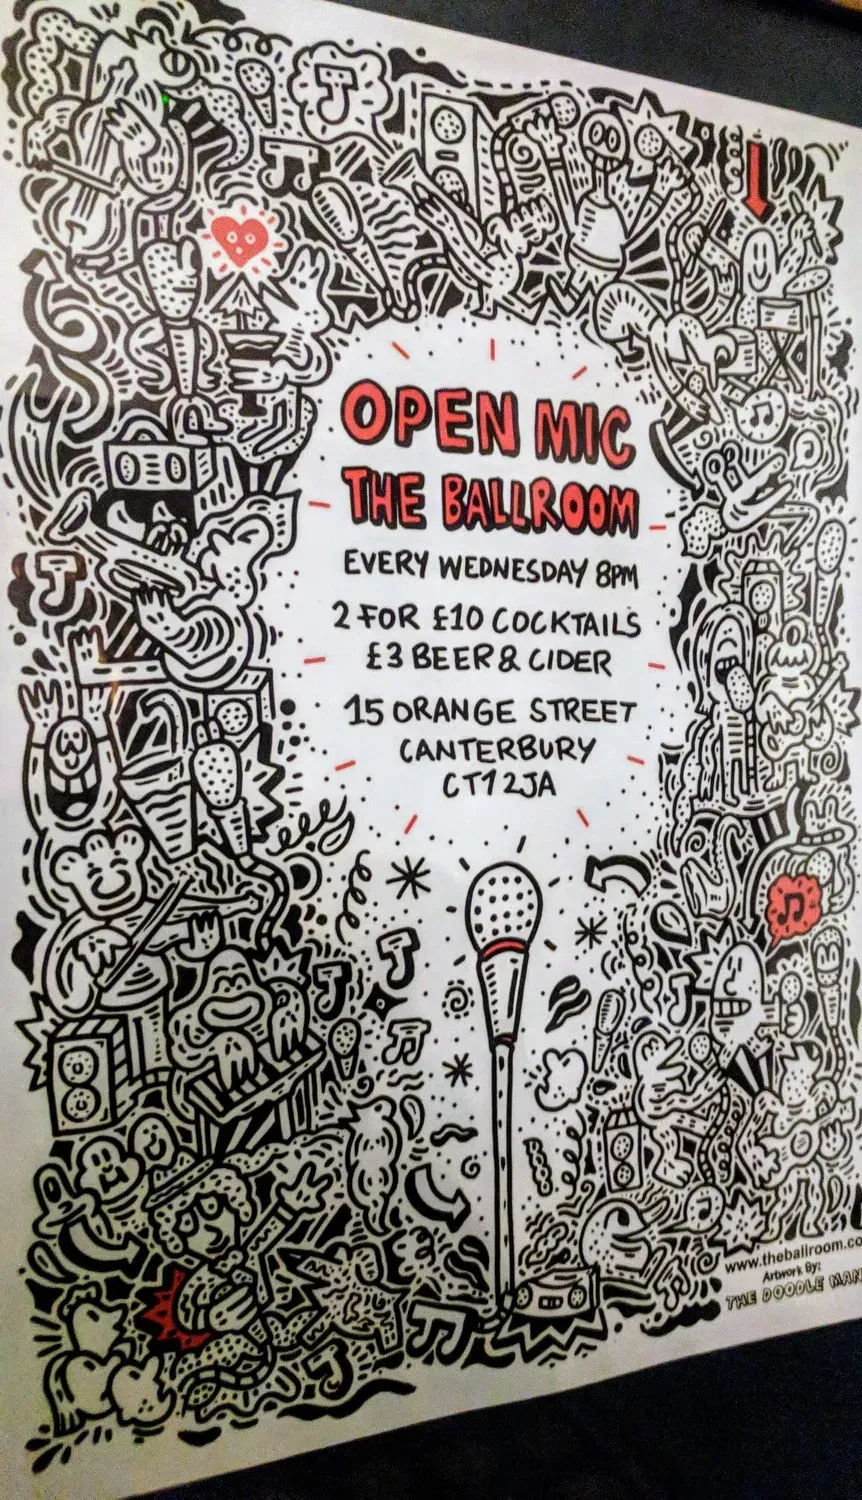 OPEN MIC
THE BALLROOM
EVERY WEDNESDAY 8PM
2 FOR £10 COCKTAILS
£3 BEER & CIDER
15 ORANGE STREET
CANTERBURY
CT1 2JA
www.theballroom.co
Artwork By:
THE DOODLE MAN